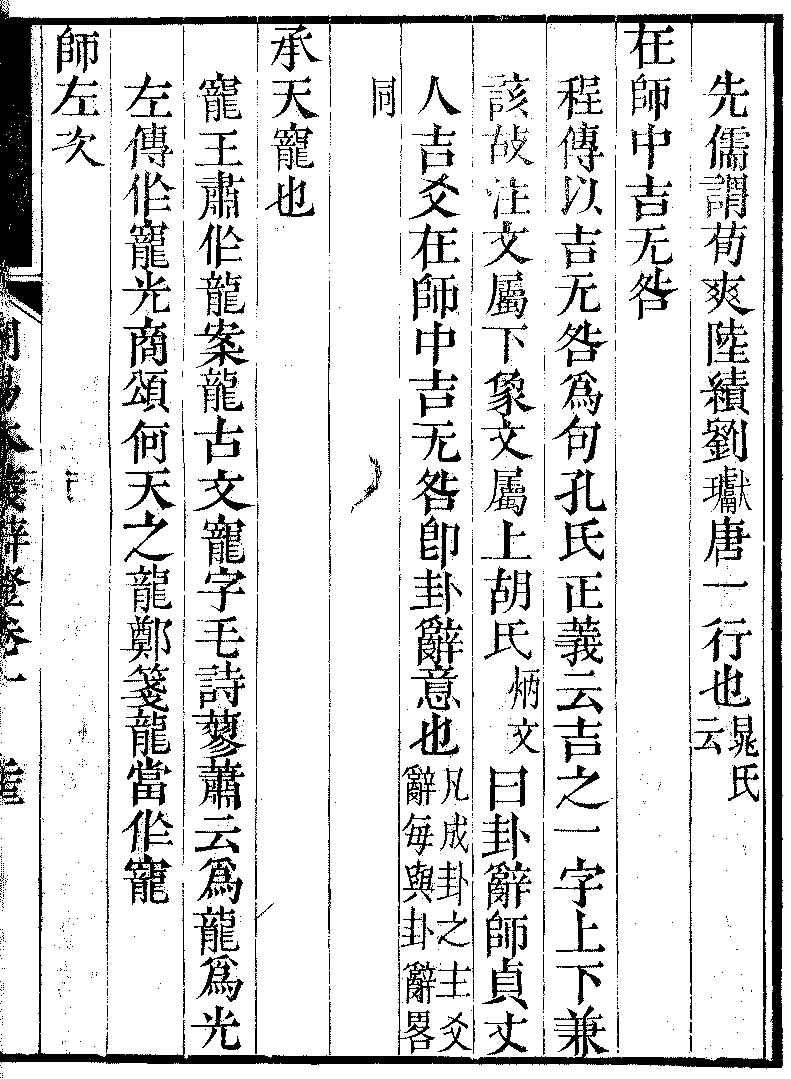 先儒謂荀爽陸績劉瓛唐一行也晁氏云
在師中吉无咎
程傳以吉无咎爲句孔氏正義云吉之一字上下兼
該故注文屬下象文屬上胡氏炳文曰卦辭師貞丈
人吉爻在師中吉无咎卽卦辭意也凡成卦之主爻辭每與卦辭畧
同
承天寵也
寵王肅作龍案龍古文寵字毛詩蓼蕭云爲龍爲光
左傳作寵光商頌何天之龍鄭箋龍當作寵
師左次
周易本義辯證卷一